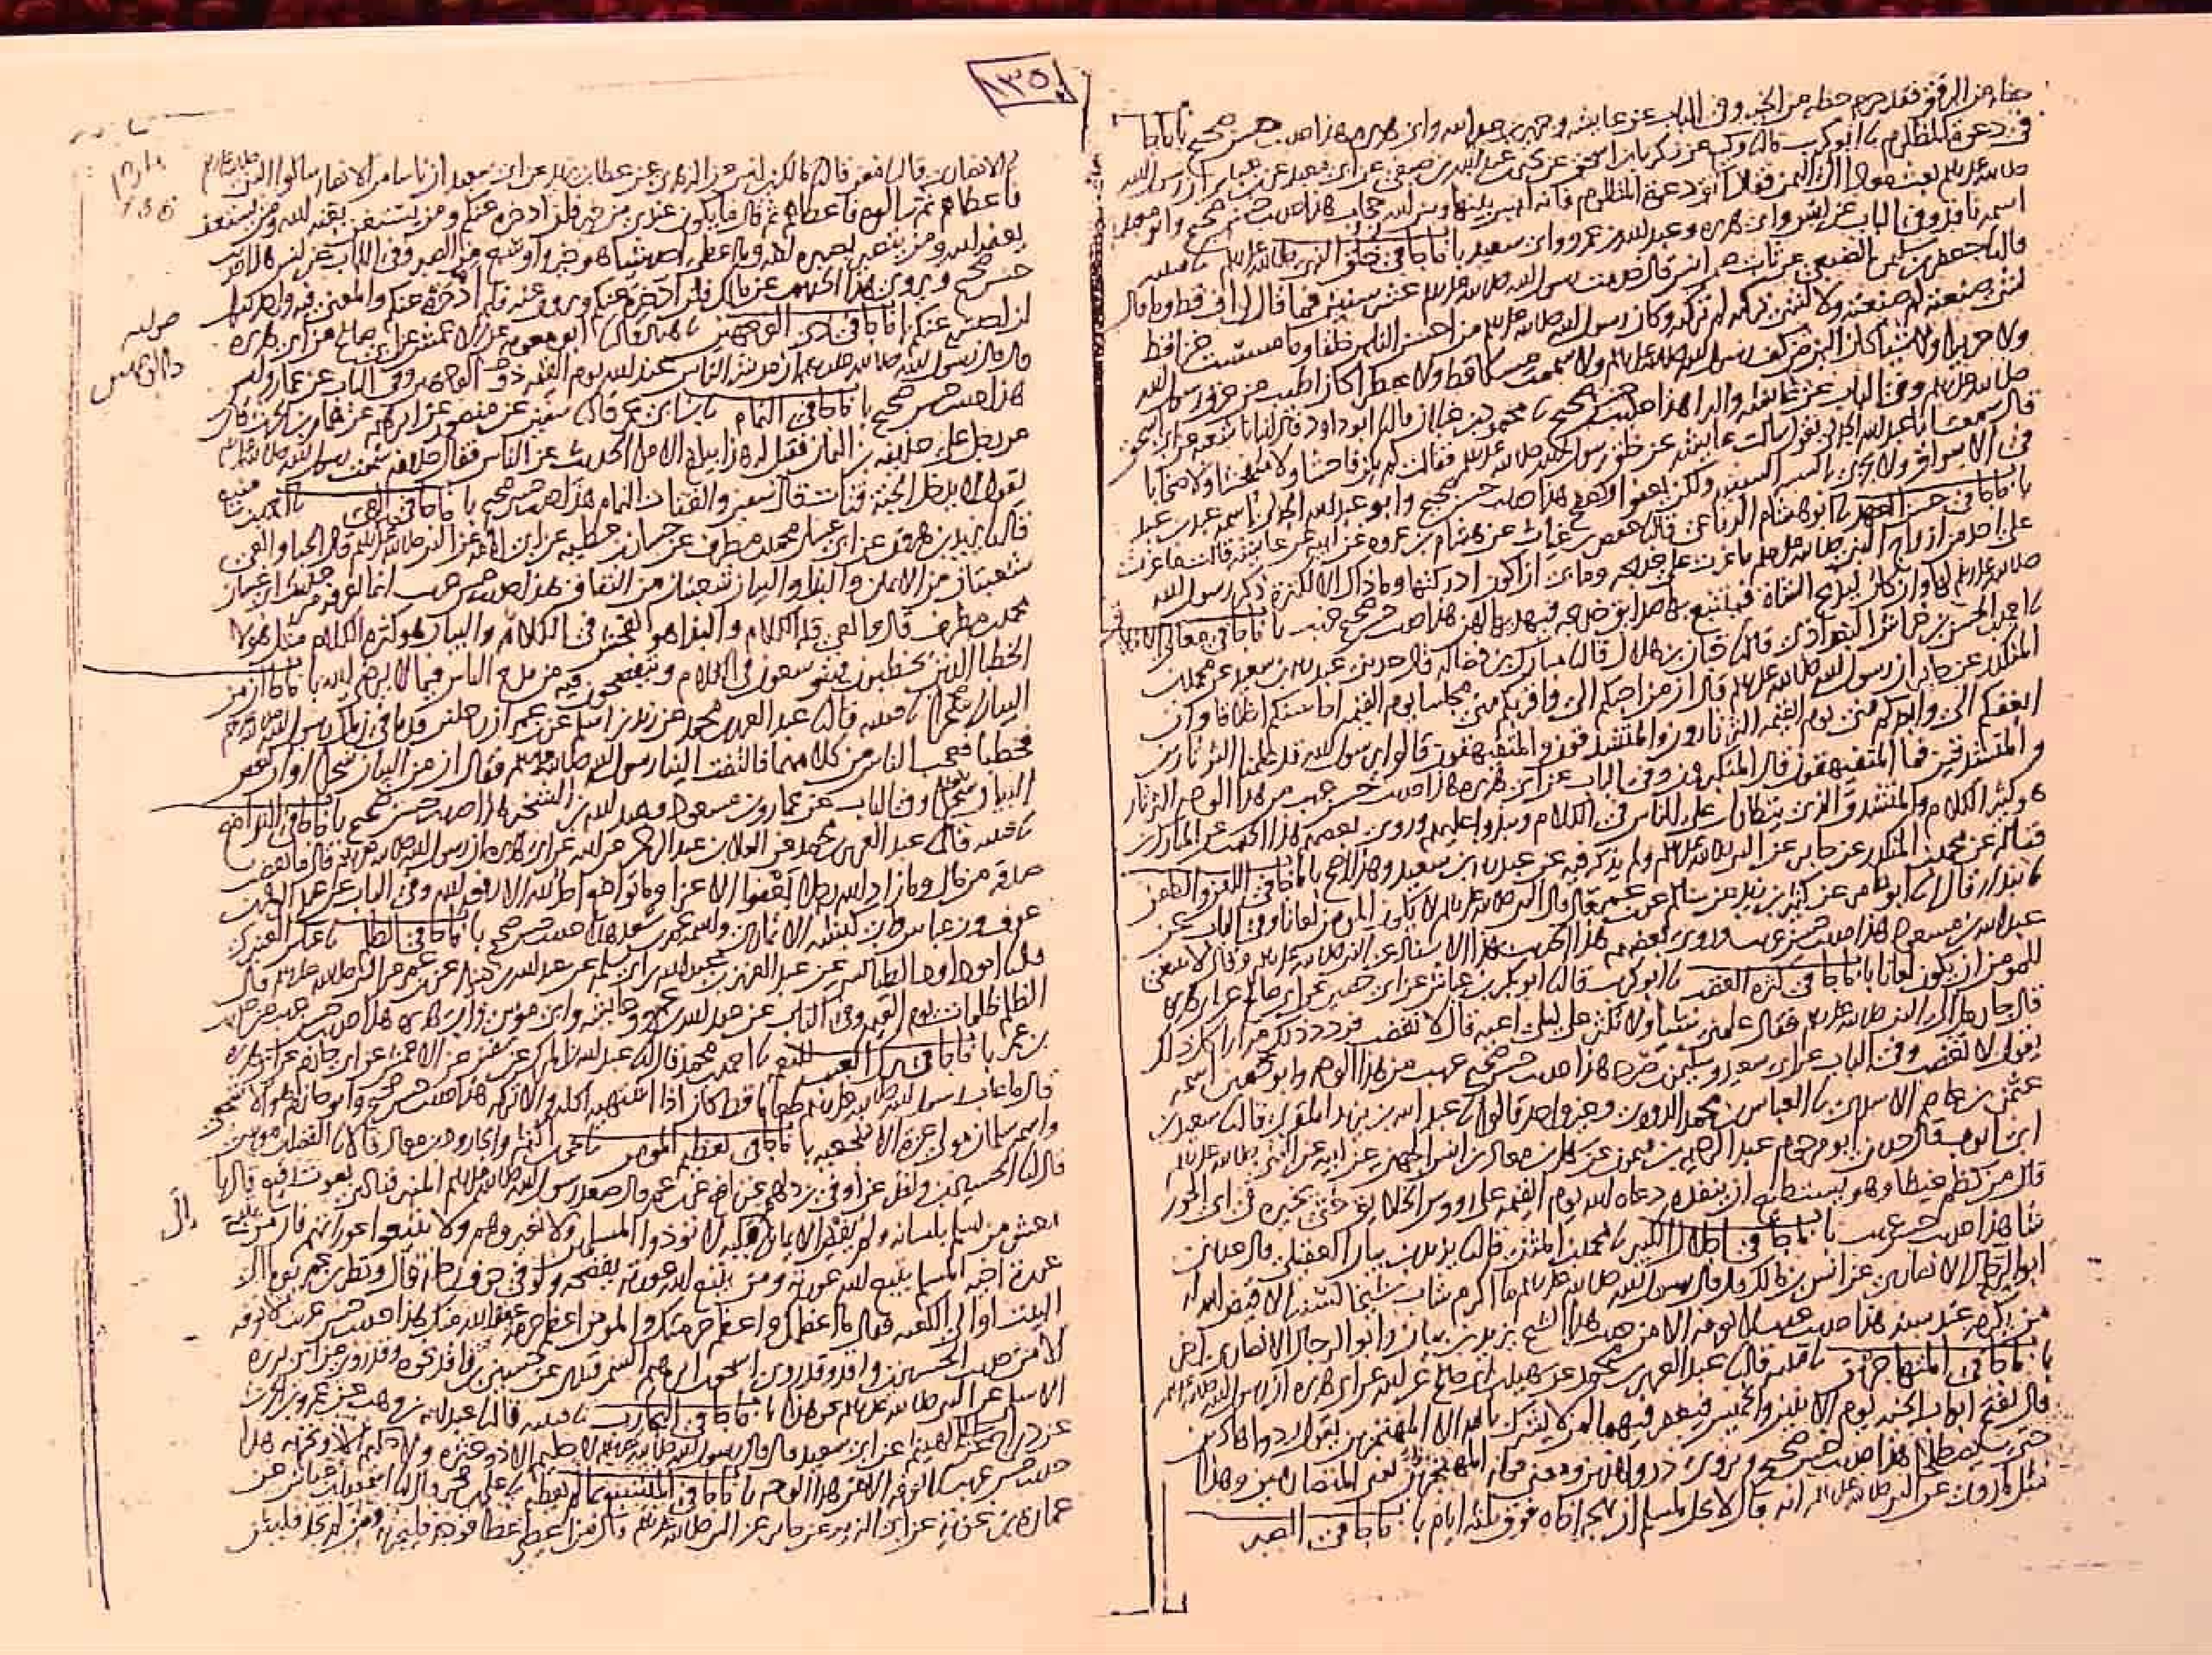 حظه من الرفق فقد حرم حظه من الخير وفي الباب عن عايشه وجرير بن عبد الله وابي هريره هذا حديث حسن صحيح باب ما جا
في دعوة المظلوم ابو كريب قال وكيع عن زكريا بن اسحق عن يحيى بن عبد الله بن صيفي عن ابي معبد عن ابن عباس ان رسول الله
صلى الله عليه وسلم بعث معاذا الى اليمن فقال اتق دعوة المظلوم فانه ليس بينها وبين الله حجاب هذا حديث حسن صحيح وابو معبد
اسمه نافذ وفي الباب عن انس وابي هريره وعبد الله بن عمرو وابي سعيد باب ما جا في خلق النبي صلى الله عليه وسلم قتيبه
قال جعفر بن سليمن الضبعي عن ثابت عن انس قال خدمت رسول الله صلى الله عليه وسلم عشر سنين فما قال لي اف قط وما قال
لشي صنعته لم صنعته ولا لشي تركته لم تركته وكان رسول الله صلى الله عليه وسلم من احسن الناس خلقا وما مسست خزا قط
ولا حريرا ولا شيا كان الين من كف رسول الله صلى الله عليه وسلم ولا شممت مسكا قط ولا عطرا كان اطيب من عرق رسول الله
صلى الله عليه وسلم وفي الباب عن عايشه والبرا هذا حديث حسن صحيح محمود بن غيلان قال ابو داود قال انبانا شعبه عن ابي اسحق
قال سمعت ابا عبد الله الجدلي يقول سالت عايشه عن خلق رسول الله صلى الله عليه وسلم فقالت لم يكن فاحشا ولا متفحشا ولا صخابا
في الاسواق ولا يجزي بالسيه السيه ولكن يعفوا ويصفح هذا حديث حسن صحيح وابو عبد الله الجدلي اسمه عبد بن عبد
باب ما جا في حسن العهد ابو هشام الرفاعي قال حفص بن غياث عن هشام بن عروه عن ابيه عن عايشه قالت ما غرت
على احد من ازواج النبي صلى الله عليه وسلم ما غرت على خديجه وما بي ان اكون ادركتها وما ذاك الا لكثرة ذكر رسول الله
صلى الله عليه وسلم لها وان كان ليذبح الشاة فيتتبع بها صدايق خديجه فيهديها لهن هذا حديث حسن صحيح غريب باب ما جا في معالي الاخلاق
احمد بن الحسن بن خراش البغدادي قال حبان بن هلال قال مبارك بن فضاله قال حدثني عبد ربه بن سعيد عن محمد بن
المنكدر عن جابر ان رسول الله صلى الله عليه وسلم قال ان من احبكم الي واقربكم مني مجلسا يوم القيمه احاسنكم اخلاقا وان
ابغضكم الي وابعدكم مني يوم القيمه الثرثارون والمتشدقون والمتفيهقون قالوا يا رسول الله قد علمنا الثرثارين
والمتشدقين فما المتفيهقون قال المتكبرون وفي الباب عن ابي هريره هذا حديث حسن غريب من هذا الوجه الثرثار
هو كثير الكلام والمتشدق الذي يتطاول على الناس في الكلام ويبذوا عليهم وروى بعضهم هذا الحديث عن المبارك بن
فضاله عن محمد بن المنكدر عن جابر عن النبي صلى الله عليه وسلم ولم يذكر فيه عن عبد ربه بن سعيد وهذا اصح باب ما جا في اللعن والطعن
بندار قال ابو عامر عن كثير بن زيد عن سالم عن ابن عمر قال قال النبي صلى الله عليه وسلم لا يكون المومن لعانا وفي الباب عن
عبد الله بن مسعود هذا حديث حسن غريب وروى بعضهم هذا الحديث بهذا الاسناد عن النبي صلى الله عليه وسلم وقال لا ينبغي
للمومن ان يكون لعانا باب ما جا في كثرة الغضب ابو كريب قال ابو بكر بن عياش عن ابي حصين عن ابي صالح عن ابي هريره
قال جا رجل الى النبي صلى الله عليه وسلم فقال علمني شيا ولا تكثر علي لعلي اعيه قال لا تغضب فردد ذلك مرارا كل ذلك
يقول لا تغضب وفي الباب عن ابي سعيد وسليمن بن صرد هذا حديث حسن صحيح غريب من هذا الوجه وابو حصين اسمه
عثمن بن عاصم الاسدي العباس بن محمد الدوري وغير واحد قالوا عبد الله بن يزيد المقري قال سعيد بن
ابي ايوب قال حدثني ابو مرحوم عبد الرحيم بن ميمون عن سهل بن معاذ بن انس الجهني عن ابيه عن النبي صلى الله عليه وسلم
قال من كظم غيظا وهو يستطيع ان ينفذه دعاه الله يوم القيمه على رووس الخلايق حتى يخيره في اي الحور
شا هذا حديث حسن غريب باب ما جا في اجلال الكبير محمد بن المثنى قال يزيد بن بيان العقيلي قال حدثني
ابو الرحال الانصاري عن انس بن مالك قال قال رسول الله صلى الله عليه وسلم ما اكرم شاب شيخا لسنه الا قيض الله له
من يكرمه عند سنه هذا حديث غريب لا نعرفه الا من حديث هذا الشيخ يزيد بن بيان وابو الرجال الانصاري اخر
باب ما جا في المتهاجرين قتيبه قال عبد العزيز بن محمد عن سهيل بن ابي صالح عن ابيه عن ابي هريره ان رسول الله صلى الله عليه وسلم
قال تفتح ابواب الجنه يوم الاثنين والخميس فيغفر فيهما لمن لا يشرك بالله الا المهتجرين يقول ردوا هاذين
حتى يصطلحا هذا حديث حسن صحيح ويروى ذروا هذين ومعنى قوله المهتجرين يعني المتصارمين وهذا
مثل ما روي عن النبي صلى الله عليه وسلم انه قال لا يحل لمسلم ان يهجر اخاه فوق ثلثه ايام باب ما جا في الصبر
١٣٥
الانصاري قال معن قال مالك بن انس عن الزهري عن عطا بن يزيد عن ابي سعيد ان ناسا من الانصار سالوا النبي صلى الله عليه وسلم
فاعطاهم ثم سالوه فاعطاهم ثم قال ما يكون عندي من خير فلن ادخره عنكم ومن يستغن يغنه الله ومن يستعفف
يعفه الله ومن يتصبر يصبره الله وما اعطي احد شيا هو خير واوسع من الصبر وفي الباب عن انس هذا حديث
حسن صحيح ويروى هذا الحديث عن مالك فلن ادخره عنكم ويروى عنه فلم ادخره عنكم والمعنى فيه واحد يقول
لن احبسه عنكم باب ما جا في ذي الوجهين هناد قال ابو معويه عن الاعمش عن ابي صالح عن ابي هريره
قال قال رسول الله صلى الله عليه وسلم ان من شر الناس عند الله يوم القيمه ذو الوجهين وفي الباب عن عمار وانس
هذا حديث حسن صحيح باب ما جا في النمام ابن ابي عمر قال سفين عن منصور عن ابرهيم عن همام بن الحرث قال
مر رجل على حذيفه بن اليمان فقيل له هذا يبلغ الامرا الحديث عن الناس فقال حذيفه سمعت رسول الله صلى الله عليه وسلم
يقول لا يدخل الجنه قتات قال سفين والقتات النمام هذا حديث حسن صحيح باب ما جا في العي احمد بن منيع
قال يزيد بن هرون عن ابي غسان محمد بن مطرف عن حسان بن عطيه عن ابي امامه عن النبي صلى الله عليه وسلم قال الحيا والعي
شعبتان من الايمان والبذا والبيان شعبتان من النفاق هذا حديث حسن غريب انما نعرفه من حديث ابي غسان
محمد بن مطرف قال والعي قلة الكلام والبذا هو الفحش في الكلام والبيان هو كثرة الكلام مثل هولا
الخطبا الذين يخطبون فيتوسعون في الكلام ويتفصحون فيه من مدح الناس فيما لا يرضي الله باب ما جا ان من
البيان سحرا قتيبه قال عبد العزيز بن محمد عن زيد بن اسلم عن ابن عمر ان رجلين قدما في زمان رسول الله صلى الله عليه وسلم
فخطبا فعجب الناس من كلامهما فالتفت الينا رسول الله صلى الله عليه وسلم فقال ان من البيان سحرا او ان بعض
البيان سحر وفي الباب عن عمار وابن مسعود وعبد الله بن الشخير هذا حديث حسن صحيح باب ما جا في التواضع
قتيبه قال عبد العزيز بن محمد عن العلا بن عبد الرحمن عن ابيه عن ابي هريره ان رسول الله صلى الله عليه وسلم قال ما نقصت
صدقه من مال وما زاد الله رجلا بعفو الا عزا وما تواضع احد لله الا رفعه الله وفي الباب عن عبد الرحمن بن
عوف وابن عباس وابي كبشه الانماري واسمه عمر بن سعد هذا حديث حسن صحيح باب ما جا في الظلم عباس العنبري
قال ابو داود الطيالسي عن عبد العزيز بن عبد الله بن ابي سلمه عن عبد الله بن دينار عن ابن عمر عن النبي صلى الله عليه وسلم قال
الظلم ظلمات يوم القيمه وفي الباب عن عبد الله بن عمرو وعايشه وابي موسى وابي هريره هذا حديث حسن غريب من حديث
ابن عمر باب ما جا في ترك العيب للنعم احمد بن محمد قال عبد الله بن المبرك عن سفين عن الاعمش عن ابي حازم عن ابي هريره
قال ما عاب رسول الله صلى الله عليه وسلم طعاما قط كان اذا اشتهاه اكله والا تركه هذا حديث حسن صحيح وابو حازم هو الاشجعي
واسمه سلمان مولى عزة الاشجعيه باب ما جا في تعظيم المومن يحيى بن اكثم والجارود بن معاذ قالا الفضل بن موسى
قال الحسين بن واقد عن اوفى بن دلهم عن نافع عن ابن عمر قال صعد رسول الله صلى الله عليه وسلم المنبر فنادى بصوت رفيع قال يا
معشر من اسلم بلسانه ولم يفض الايمان الى قلبه لا توذوا المسلمين ولا تعيروهم ولا تتبعوا عوراتهم فانه من تتبع
عورة اخيه المسلم يتبع الله عورته ومن يتبع الله عورته يفضحه ولو في جوف رحله قال ونظر ابن عمر يوما الى
البيت او الى الكعبه فقال ما اعظمك واعظم حرمتك والمومن اعظم حرمة عند الله منك هذا حديث حسن غريب لا نعرفه
الا من حديث الحسين بن واقد وقد روى اسحق بن ابرهيم السمرقندي عن حسين بن واقد نحوه وقد روي عن ابي برزه
الاسلمي عن النبي صلى الله عليه وسلم نحو هذا باب ما جا في التجارب قتيبه قال عبد الله بن وهب عن عمرو بن الحرث
عن دراج عن ابي الهيثم عن ابي سعيد قال قال رسول الله صلى الله عليه وسلم لا حليم الا ذو عثره ولا حكيم الا ذو تجربه هذا
حديث حسن غريب لا نعرفه الا من هذا الوجه باب ما جا في المتشبع بما لم يعطه علي بن حجر قال اسمعيل بن عياش عن
عمارة بن غزيه عن ابي الزبير عن جابر عن النبي صلى الله عليه وسلم قال من اعطي عطا فوجد فليجز به ومن لم يجد فليثن